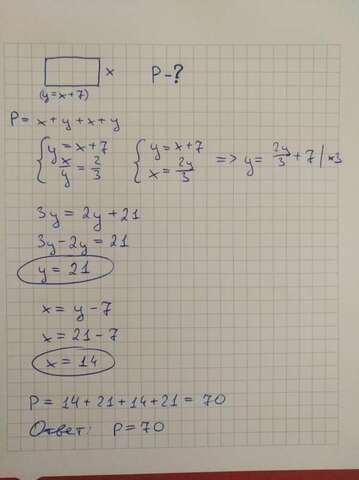 x P-?
(y=x+7)
P= x+y+x+y
{ y=x+7 { y=x+7 => y= 2y/3 +7 | x3
{ x/y = 2/3 { x= 2y/3
3y = 2y+21
3y-2y=21
y=21
x = y-7
x = 21-7
x = 14
P = 14+21+14+21 = 70
Ответ: P=70